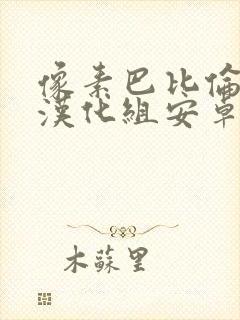 像素巴比倫
漢化組安卓
木蘇里